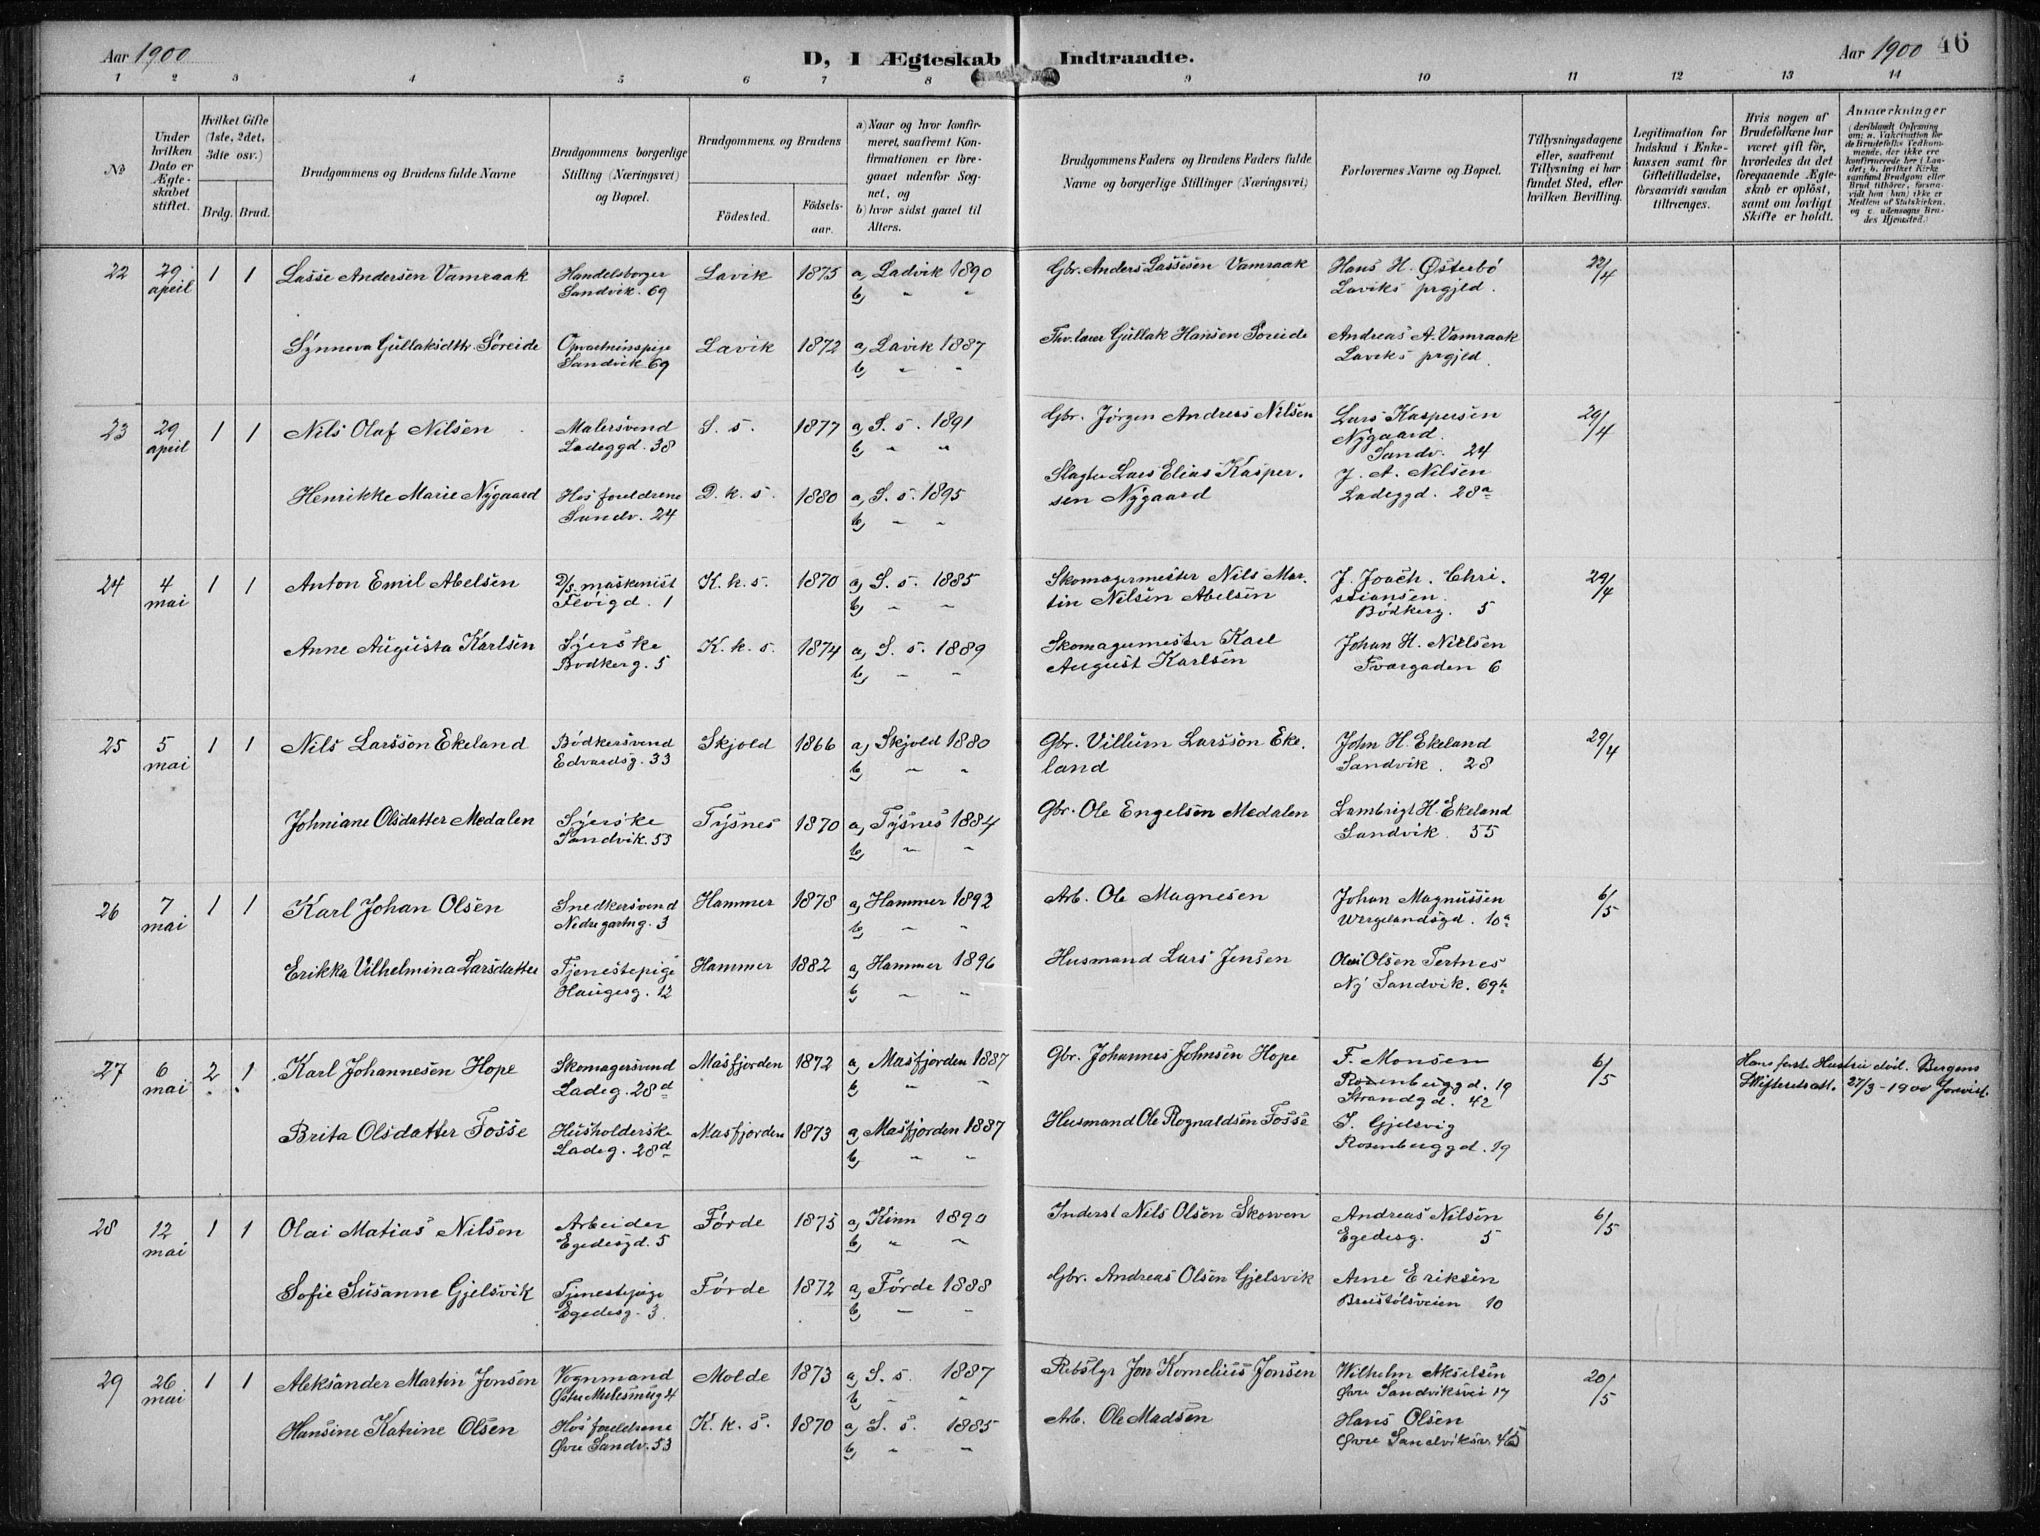 Aar 1900
D, I Ægteskab Indtraadte.
Aar 1900 46
1 2 3 4 5 6 7 8 9 10 11 12 13 14
No
Under hvilken Dato er Ægteskabet stiftet.
Hvilket Gifte (1ste, 2det, 3die osv.)
Brdg. Brud.
Brudgommens og Brudens fulde Navne
Brudgommens borgerlige Stilling (Næringsvei) og Bopæl.
Brudgommens og Brudens
Födested.
Födselsaar.
a) Naar og hvor konfirmeret, saafremt Konfirmationen er foregaaet udenfor Sognet, og
b) hvor sidst gaaet til Alters.
Brudgommens Faders og Brudens Faders fulde Navne og borgerlige Stillinger (Næringsvei)
Forlovernes Navne og Bopæl.
Tillysningsdagene eller, saafremt Tillysning ei har fundet Sted, efter hvilken Bevilling.
Legitimation for Indskud i Enkekassen samt for Giftetilladelse, forsaavidt saadan tiltrænges.
Hvis nogen af Brudefolkene har været gift för, hvorledes da det foregaaende Ægteskab er oplöst, samt om lovligt Skifte er holdt.
Anmærkninger
22 29 april 1 1 Lasse Andersen Vamraak Handelsborger Sandvik. 69 Lavik 1875 a, Ladvik 1890 b, " " Gbr. Anders Lassesen Vamraak Hans H. Østerbö Laviks prgjld. 22/4
Synneva Gullaksdttr. Søreide Opvartninspige Sandvik 69 Lavik 1872 a, Lavik 1887 b, " " Gullak Hansen Soreide Andreas A. Vamraak Laviks prgjld.
23 29 april 1 1 Nils Olaf Nilsen Malersvend Ladeggd. 38 S. s. 1877 a, S. s. 1891 b, " " Gbr. Jørgen Andreas Nilsen Lars Kaspersen Nygaard. Sandv. 24 29/4
Henrikke Marie Nygaard Hos foreldrene Sandv. 24 D. k. s. 1880 a, S. s. 1895 b, " " Slagter Lars Elias Kaspersen Nygaard J. A. Nilsen Ladeggd. 28a
24 4 mai 1 1 Anton Emil Abelsen D/s. maskenist Fløigd. 1 K. k. s. 1870 a, S. s. 1885 b, " " Skomagermester Nils Martin Nilsen Abelsen J. Joach. Christiansen. Bødkerg. 5 29/4
Anne Augusta Karlsen Syerske Bødkerg. 5 K. k. s. 1874 a, S. s. 1889 b, " " Skomagermester Karl August Karlsen Johan H. Nielsen Tvergaden 6
25 5 mai 1 1 Nils Larsson Ekeland Bødkersvend Edvardsg. 33 Skjold 1866 a, Skjold 1880 b, " " Gbr. Villum Larsson Ekeland John H. Ekeland Sandvik. 28 29/4
Johniane Olsdatter Medalen Syerske Sandvik. 55 Tysnes 1870 a, Tysnes 1884 b, " " Gbr. Ole Engelsen Medalen Lambrigt H. Ekeland Sandvik. 55
26 7 mai 1 1 Karl Johan Olsen Snedkersvend Nedregartng. 3 Hammer 1878 a, Hammer 1892 b, " " Arb. Ole Magnesen Johan Magnussen Wergelandsgd. 10a 6/5
Erikka Vilhelmina Larsdatter Tjenestepige Haugesg. 12 Hammer 1882 a, Hammer 1896 b, " " Husmand Lars Jensen Olai Olsen Tertnes Ny Sandvik. 69b
27 6 mai 2 1 Karl Johannesen Hope Skomagersvend Ladeg. 28d Masfjorden 1872 a, Masfjorden 1887 b, " " Gbr. Johannes Johnsen Hope F. Monsen Rosenberggd. 19 Strandgd. 42 6/5 Hans første Hustru död. Bergens Skifteretsatt. 27/3-1900 forevist.
Brita Olsdatter Fosse Husholderske Ladeg. 28d Masfjorden 1873 a, Masfjorden 1887 b, " " Husmand Ole Rognaldsen Fosse J. Gjelsvig Rosenberggd. 19
28 12 mai 1 1 Olai Matias Nilsen Arbeider Egedesgd. 5 Førde 1875 a, Kinn 1890 b, " " Inderst Nils Olsen Skorven Andreas Nilsen Egedesg. 5 6/5
Sofie Susanne Gjelsvik Tjenestepige Egedesg. 3. Førde 1872 a, Førde 1888 b, " " Gbr. Andreas Olsen Gjelsvik Arne Eriksen Breistølsveien 10
29 26 mai 1 1 Aleksander Martin Jonsen Vognmand Østre Mulesmug 4 Molde 1873 a, S. s. 1887 b, " " Rebslgr Jon Kornelius Jonsen Wilhelm Akselsen Øvre Sandviksvei 17 20/5
Hansine Katrine Olsen Hos foreldrene Øvre Sandv. 53 K. k. s. 1870 a, S. s. 1885 b, " " Arb. Ole Madsen Hans Olsen Øvre Sandviksv. 45